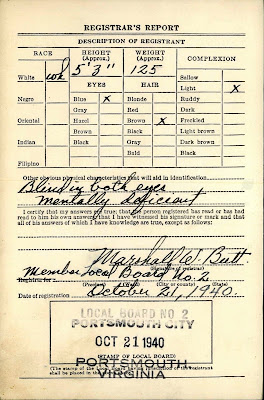 REGISTRAR'S REPORT
DESCRIPTION OF REGISTRANT
RACE HEIGHT (Approx.) WEIGHT (Approx.) COMPLEXION
White wh 5' 2" 125 Sallow
EYES HAIR Light X
Negro Blue X Blonde Ruddy
Gray Red Dark
Oriental Hazel Brown X Freckled
Brown Black Light brown
Indian Black Gray Dark brown
Bald Black
Filipino
Other obvious physical characteristics that will aid in identification
Blind in both eyes
mentally deficient
I certify that my answers are true; that the person registered has read or has had
read to him his own answers; that I have witnessed his signature or mark and that
all of his answers of which I have knowledge are true, except as follows:
Marshall W. Butt
(Signature of registrar)
Member Local Board No. 2
Registrar for
(Precinct) (City or county) (State)
Date of registration October 21, 1940.
LOCAL BOARD NO 2
PORTSMOUTH CITY
OCT 21 1940
(STAMP OF LOCAL BOARD)
PORTSMOUTH
(The stamp of the Local Board of the registrant
shall be placed in the
VIRGINIA